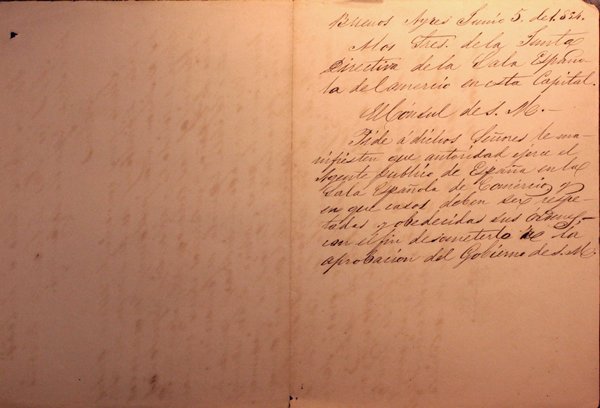 Buenos Ayres Junio 5. de 1.854.
A los Sres. de la Junta
Directiva de la Sala Españo
la del Comercio en esta Capital.
El Cónsul de S. M. —
Pide á dichos Señores le ma-
nifiesten que autoridad ejerce el
Agente publico de España en la
Sala Española de Comercio y
en que casos deben ser respe-
tadas y obedecidas sus órdenes,
con el fin de someterlo á la
aprobacion del Gobierno de S. M.